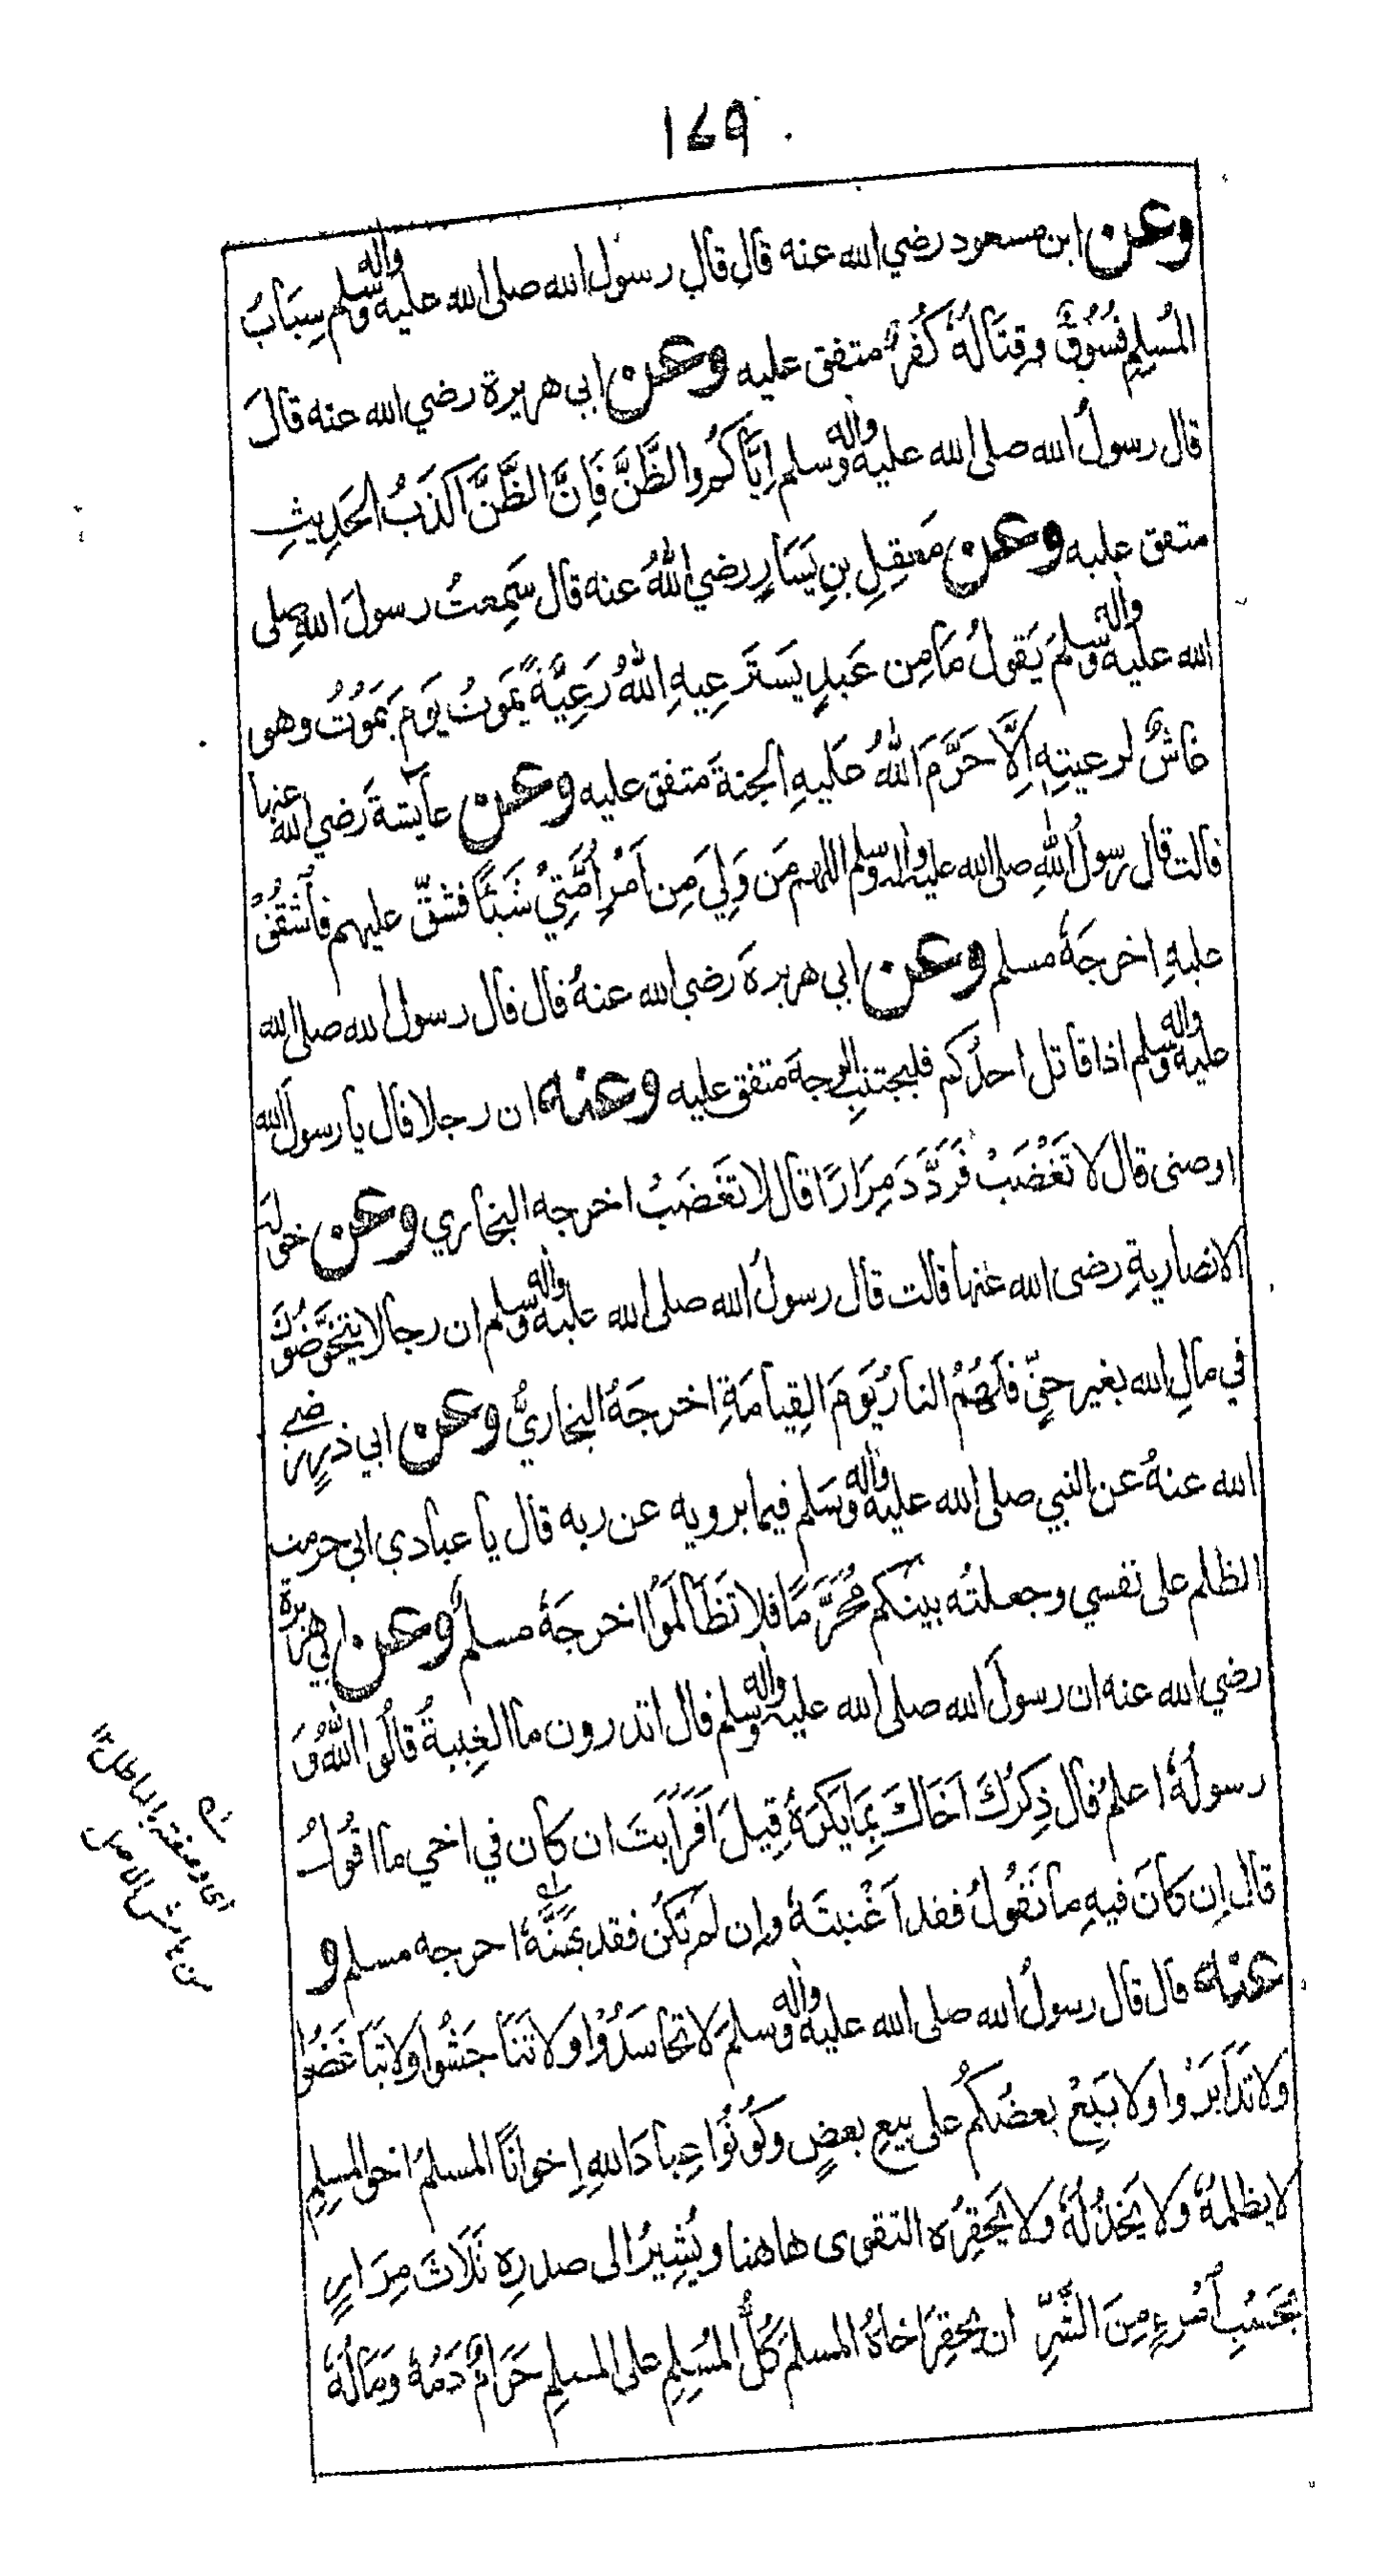 169
وعن ابن مسعود رضي الله عنه قال قال رسول الله صلى الله عليه واله وسلم سِبَابُ
المُسْلِمِ فُسُوقٌ وقِتَالُهُ كُفْرٌ متفق عليه وعن ابي هريرة رضي الله عنه قالَ
قال رسولُ الله صلى الله عليه واله وسلم اِيَّاكُم والظَّنَّ فَاِنَّ الظَّنَّ اَكذَبُ الحَدِيثِ
متفق عليه وعن مَعقِلِ بنِ يَسَارٍ رضي اللهُ عنه قال سَمِعتُ رسولَ اللهِ صلى
الله عليه واله وسلمَ يَقولُ مَا مِن عَبدٍ يَستَرعِيهِ اللهُ رَعِيَّةً يَمُوتُ يَومَ يَمُوتُ وهو
غاشٌّ لرعيتِهِ اِلَّا حَرَّمَ اللهُ عَليهِ الجنةَ متفق عليه وعن عايشةَ رَضي الله عنها
قالت قال رسولُ اللهِ صلى الله عليه واله وسلم اللهم مَن وَلِيَ مِن اَمْرِ اُمَّتِي شَيئًا فشقّ عليهم فاشْقُقْ
عليهِ اخرجَهُ مسلم وعن ابي هريرةَ رَضي الله عنهُ قال قال رسول الله صلى الله
عليه واله وسلم اذا قاتل احدُكم فليجتنبِ الوجهَ متفق عليه وعنه ان رجلا قال يا رسول الله
اوصني قال لا تَغْضَبْ فَرَدَّدَ مِرَارًا قال لا تَغضَبْ اخرجه البخاري وعن خولة
الانصاريةِ رضي الله عنها قالت قال رسولُ الله صلى الله عليه واله وسلم ان رجالا يتخوَّضُونَ
في مالِ الله بغير حقٍّ فلَهُمُ النارُ يَومَ القِيامَةِ اخرجَهُ البخاريُّ وعن ابي ذرٍ رضي
الله عنهُ عن النبي صلى الله عليه واله وسَلم فيما يرويه عن ربه قال يا عبادي اني حرمت
الظلم على نفسي وجعلتُه بينَكم مُحَرَّمًا فلا تَظَالَمُوا اخرجَهُ مسلم وعن ابي هريرة
رضي الله عنه ان رسولَ الله صلى الله عليه واله وسلم قال اتدرون ما الغِيبةُ قالُوا اللهُ وَ
رسولُهُ اعلمُ قال ذِكرُكَ اَخَاكَ بِمَا يَكرَهُ قِيلَ اَفَرَاَيتَ ان كان في اخي ما اقُولُ
قال اِن كانَ فيهِ ما تَقُولُ فقد اَغْتبتَهُ وان لَم تكُن فقد بَهَتَّهُ اخرجه مسلم و
عنه قال قال رسولُ الله صلى الله عليه واله وسلمَ لا تَحاسَدُوْا ولا تَنَاجَشُوا ولا تَبَاغَضُوا
ولا تَدَابَرَوا ولا يَبِعْ بعضُكم على بيعِ بعضٍ وكُونُوا عِبادَ اللهِ اِخوانًا المسلمُ اخو المسلِمِ
لا يظلمهُ وَلا يَخذُلُهُ ولا يَحقِرُه التقوى هاهنا ويُشِيرُ الى صدرِه ثَلَاثَ مِرَارٍ
بحَسْبِ اَمْرءٍ مِنَ الشَّرِّ ان يَحقِرَ اخاهُ المسلمَ كُلُّ المُسلِمِ على المسلمِ حَرَامٌ دَمُهُ وَمَالُهُ